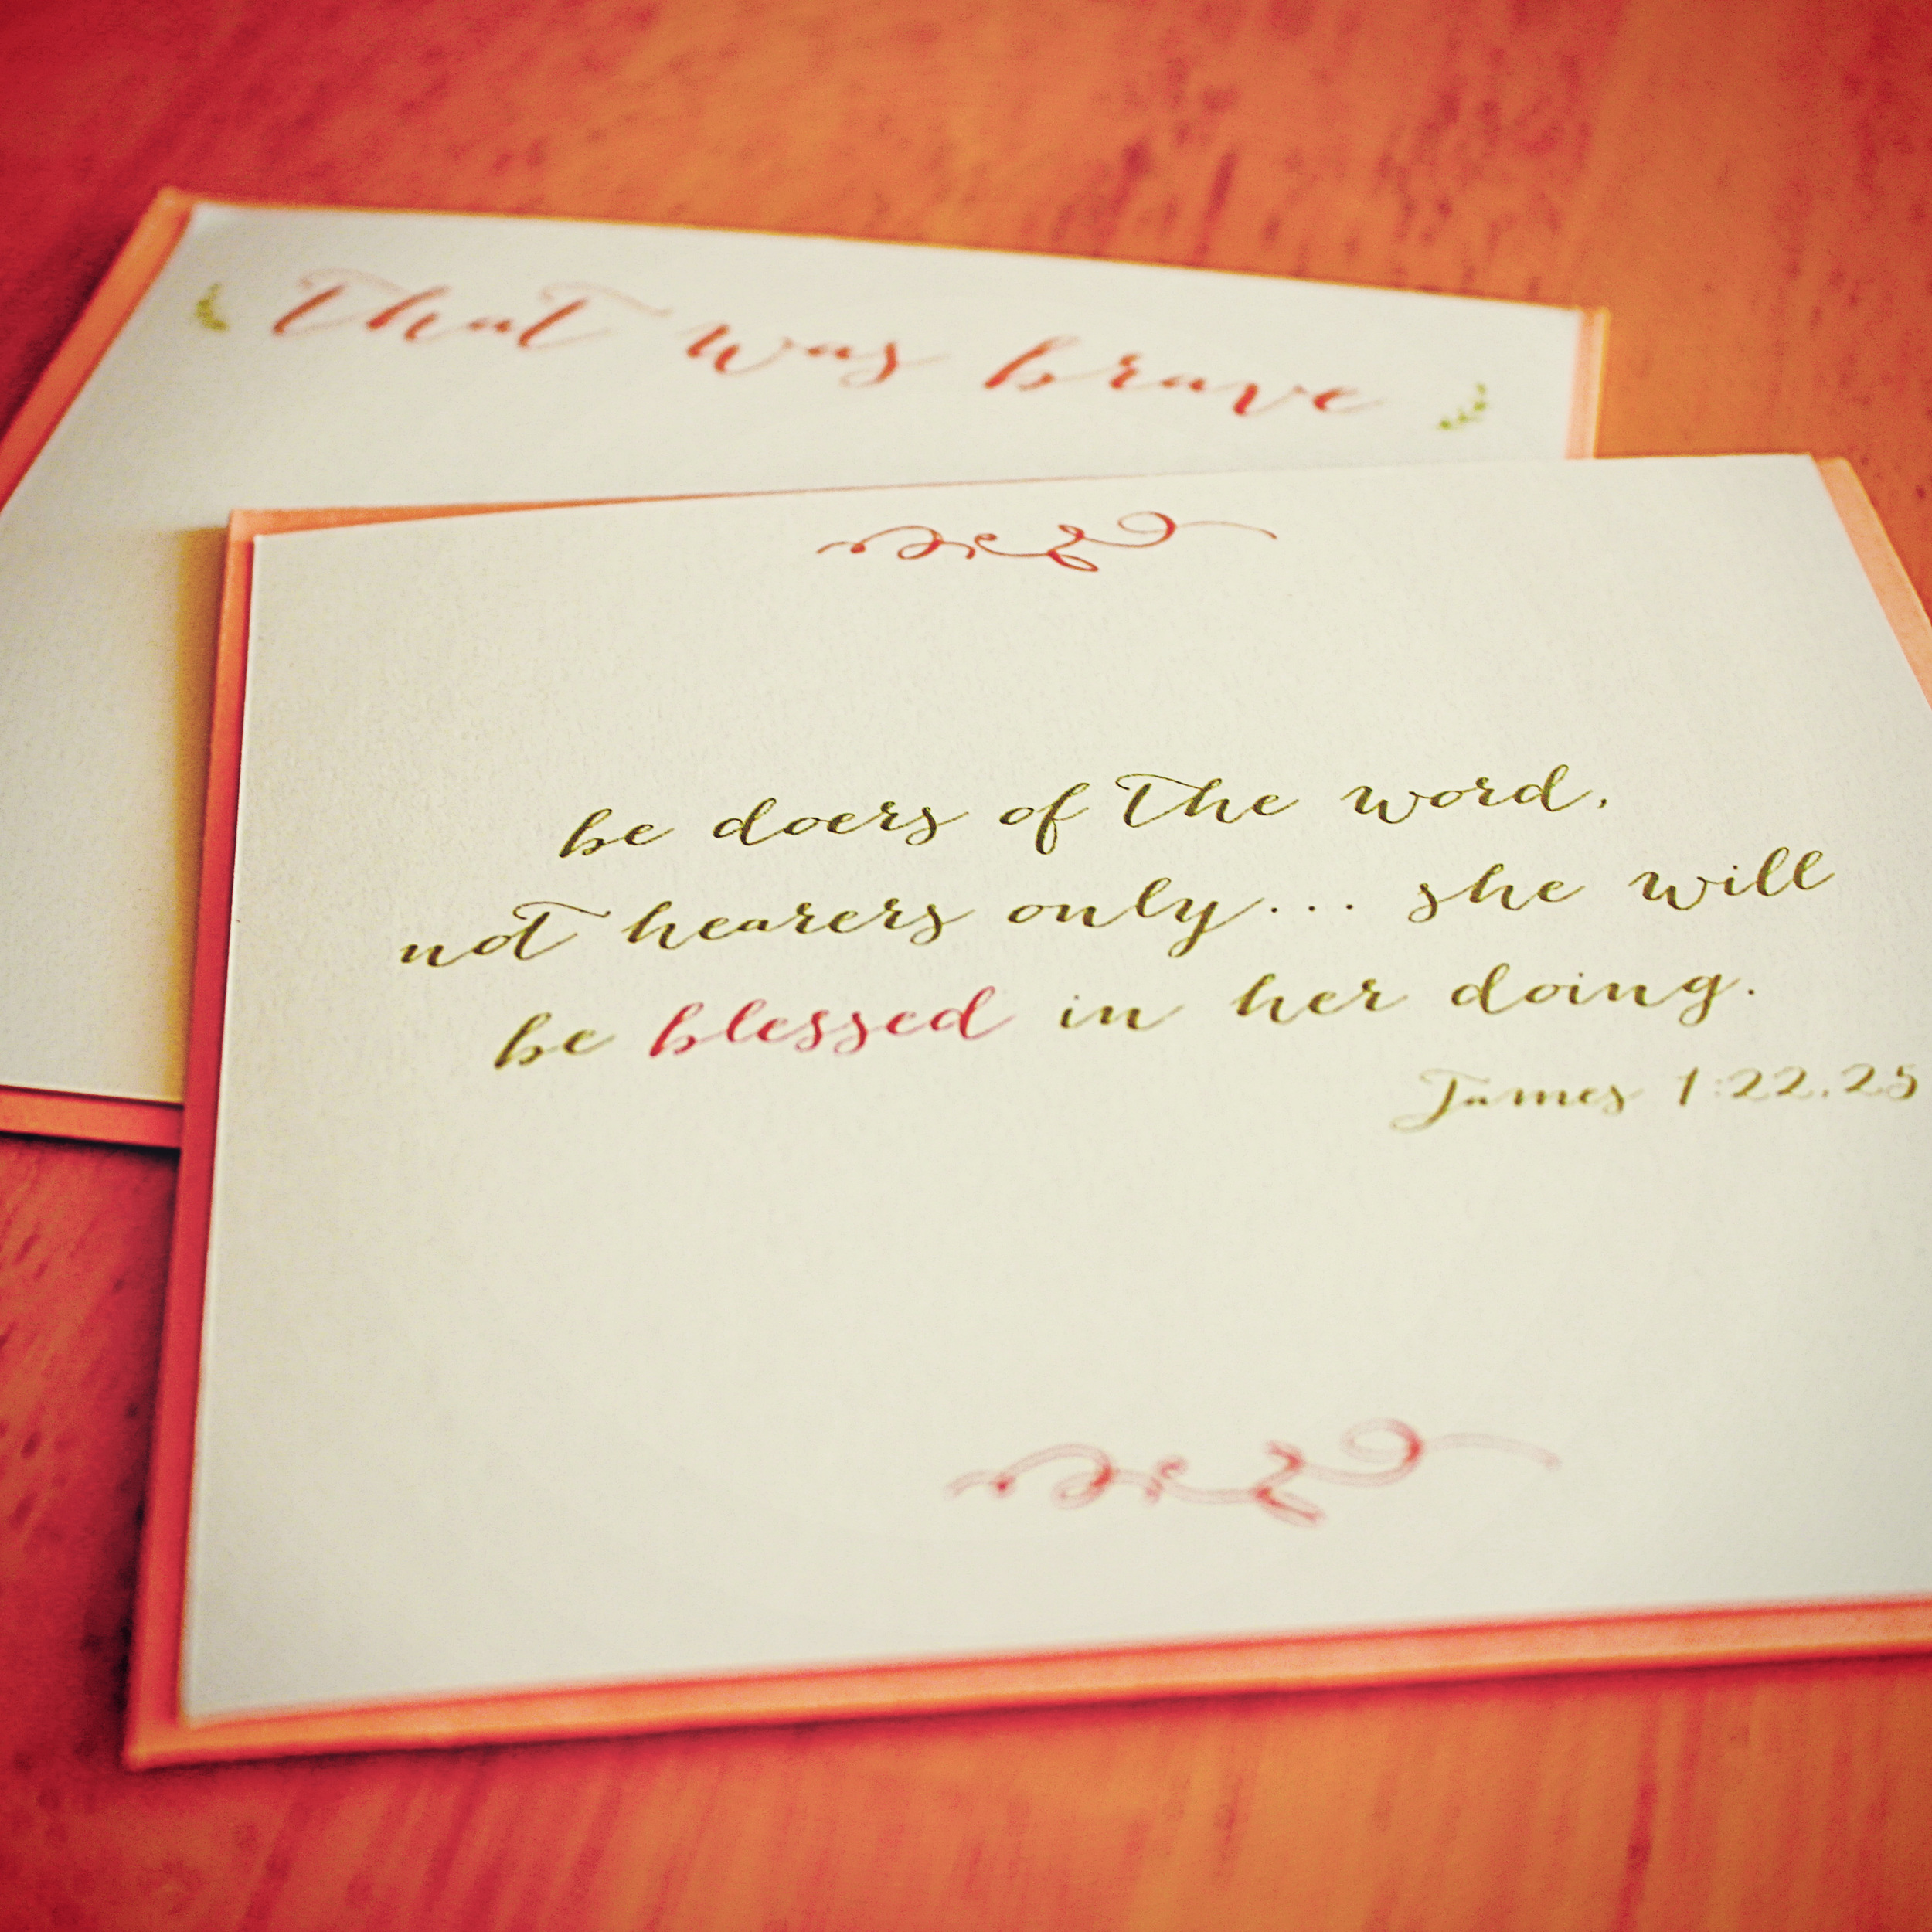 That was brave
be doers of the word,
not hearers only... she will
be blessed in her doing.
James 1:22,25